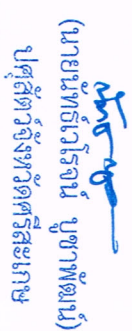 (นายพัทธ์เวโรจน์ บูชาพัฒน์)
ปศุสัตว์จังหวัดศรีสะเกษ